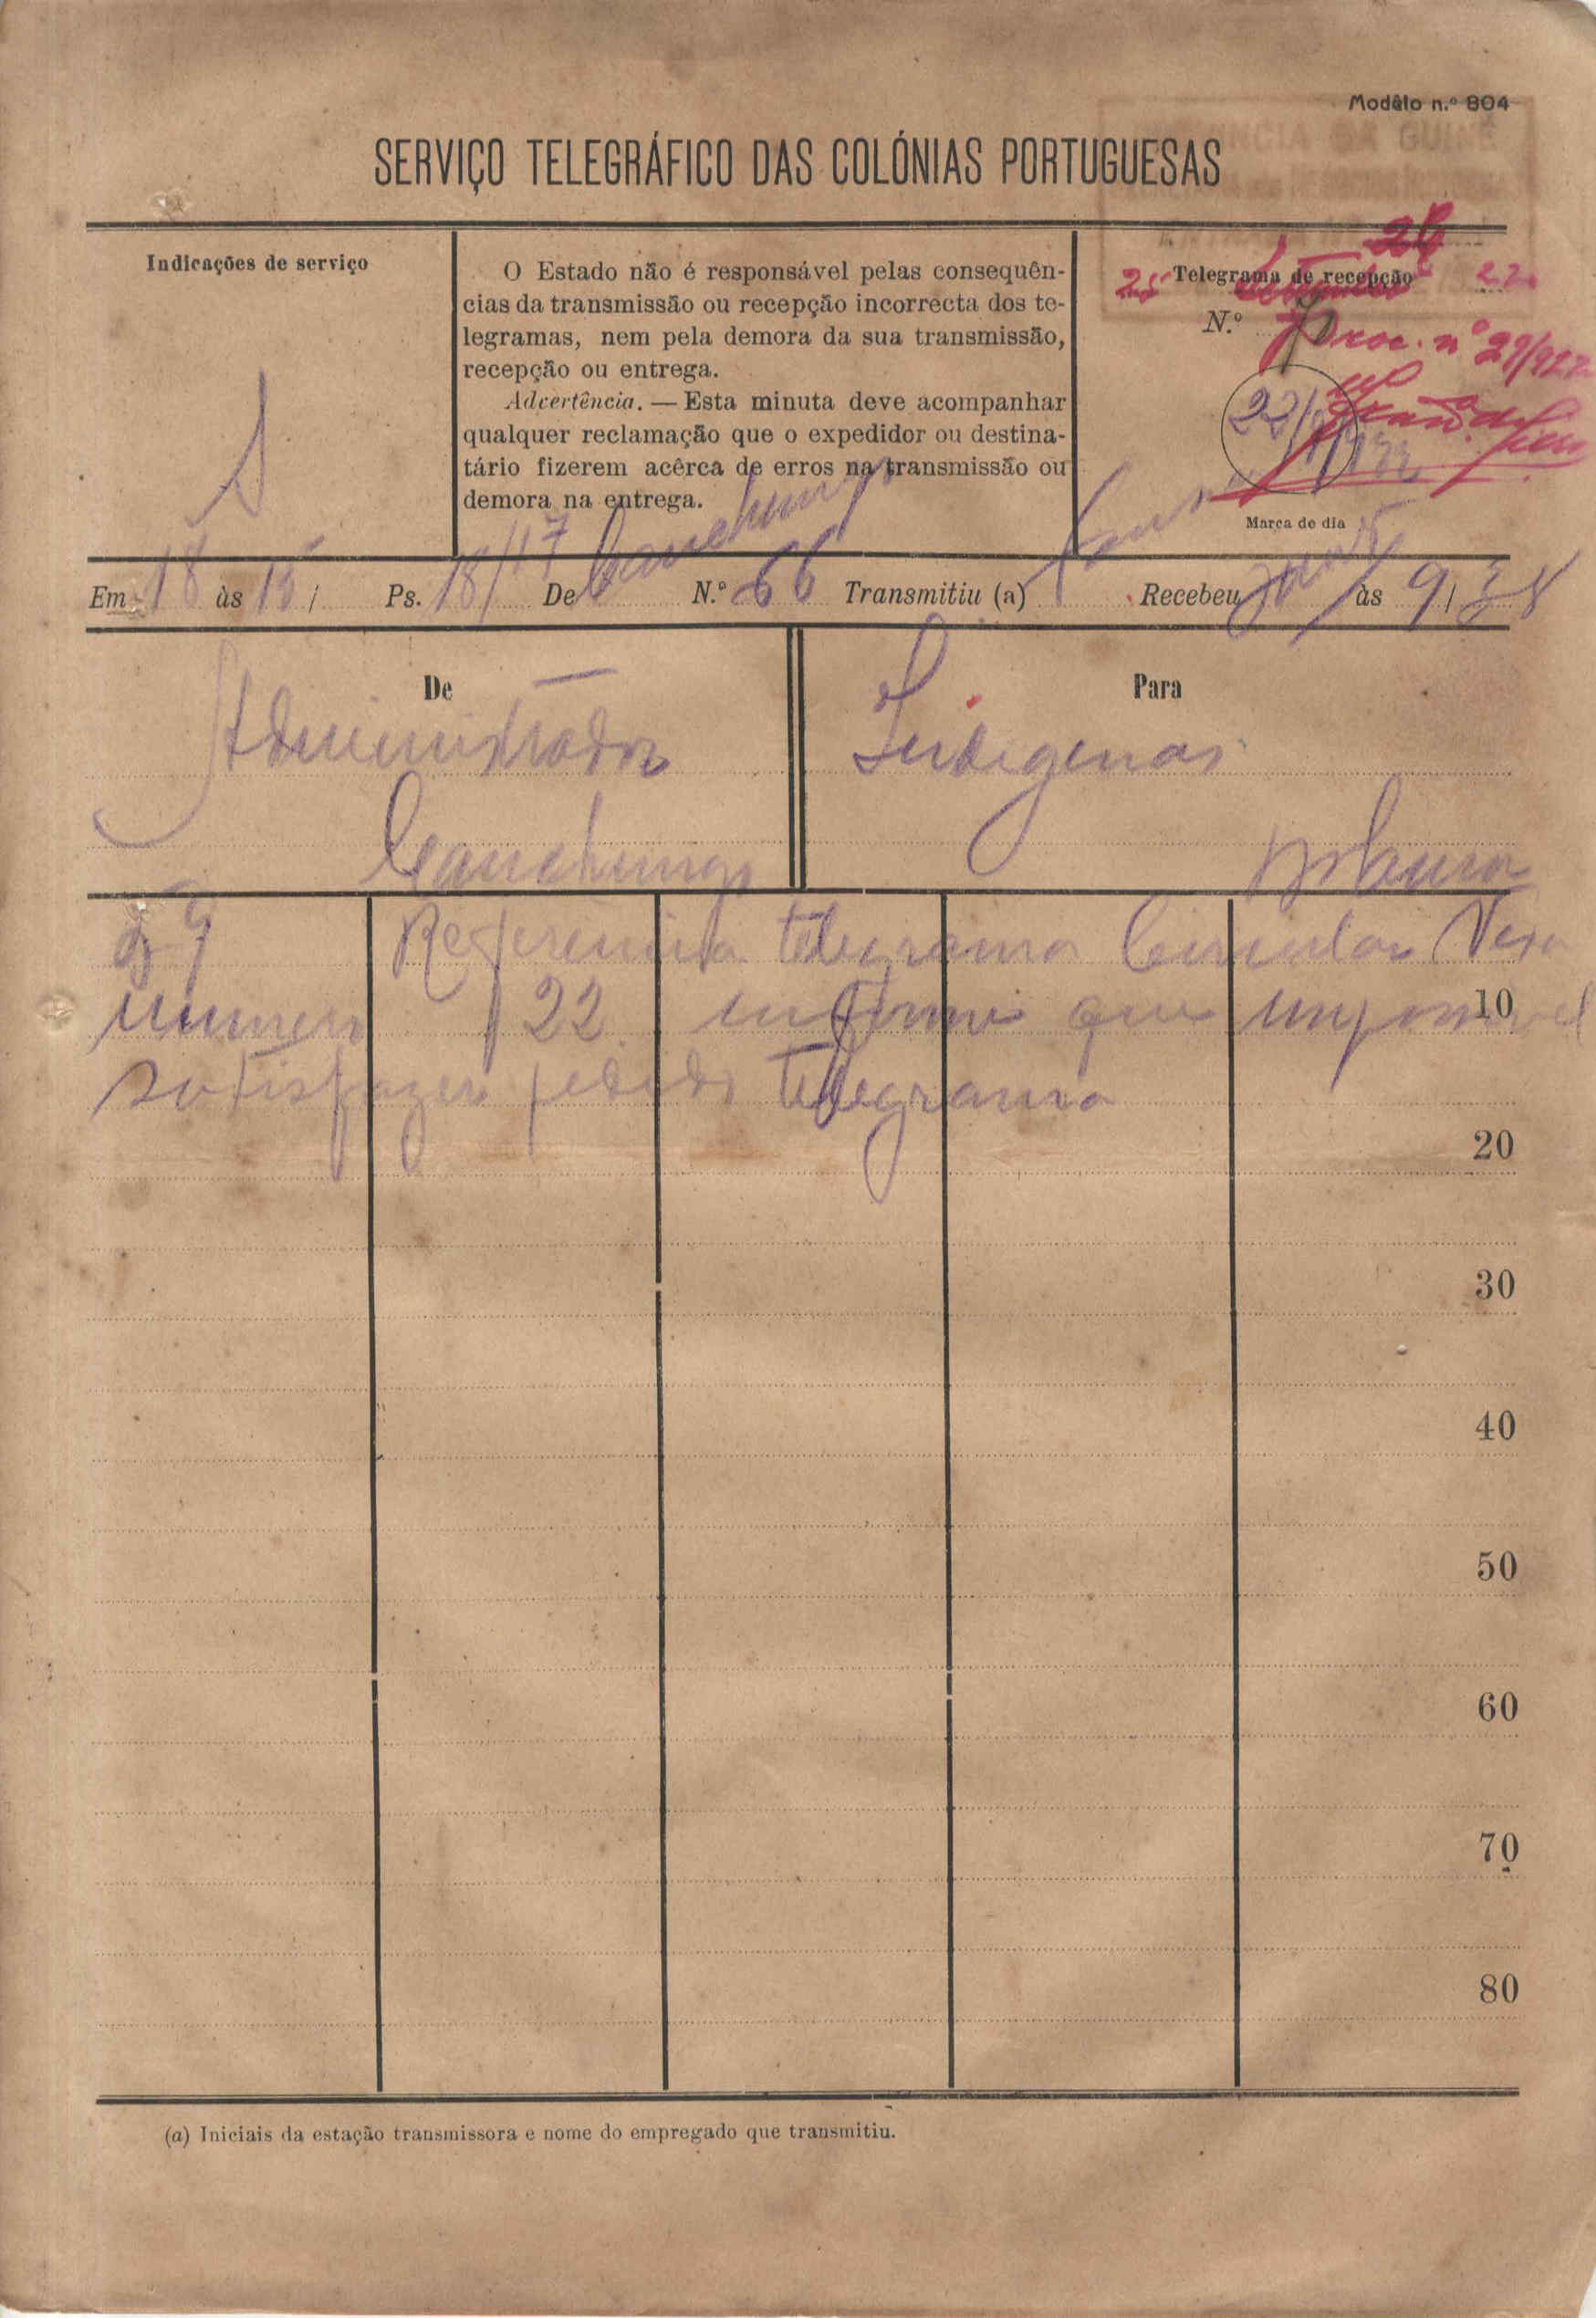 Modêlo n.º 804
PROVINCIA DA GUINÉ
SERVIÇO TELEGRÁFICO DAS COLÓNIAS PORTUGUESAS
Indicações de serviço
S
O Estado não é responsável pelas consequên-
cias da transmissão ou recepção incorrecta dos te-
legramas, nem pela demora da sua transmissão,
recepção ou entrega.
Advertência. — Esta minuta deve acompanhar
qualquer reclamação que o expedidor ou destina-
tário fizerem acêrca de erros na transmissão ou
demora na entrega.
26
25 Setembro 22
Telegrama de recepção
N.º
Proc. nº 29/922
22/
Marca do dia
Em 18 às 15 / Ps. 18/17 De Canchungo N.º 66 Transmitiu (a) Recebeu às 9/38
De
Administrador
Canchungo
Para
Indigenas
Bolama
Referencia telegrama Circular Vexa
numero 122 informo que impossivel
10
satisfazer pedido telegrama
20
30
40
50
60
70
80
(a) Iniciais da estação transmissora e nome do empregado que transmitiu.